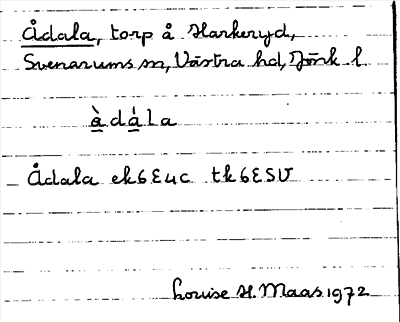 Ådala, torp å Harkeryd,
Svenarums sn, Västra hd, Jönk l.
àdála
Ådala ek6E4c tk6E5V
Louise H. Maas 1972